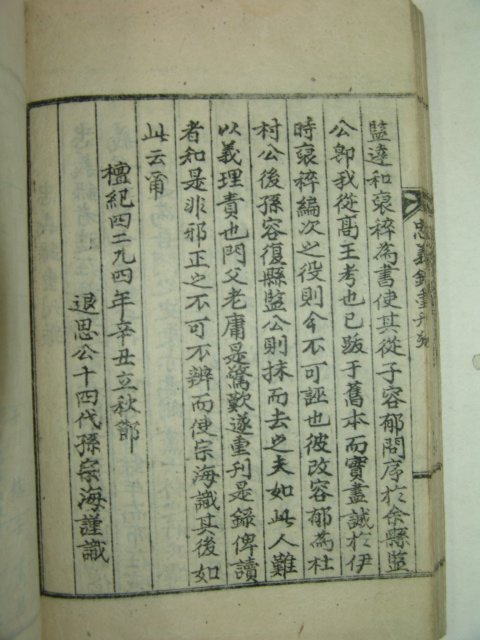 忠義錄重刊
監達和裒稡為書使其從子容郁問序於余縣監
公卽我從髙王考也已跋于舊本而實盡誠於伊
時裒稡編次之役則今不可誣也彼改容郁為杜
村公後孫容復縣監公則抹而去之夫如此人難
以義理責也門父老庸是驚歎遂重刊是錄俾讀
者知是非邪正之不可不辨而使宗海識其後如
此云爾
檀紀四二九四年辛丑立秋節
退思公十四代孫宗海謹識